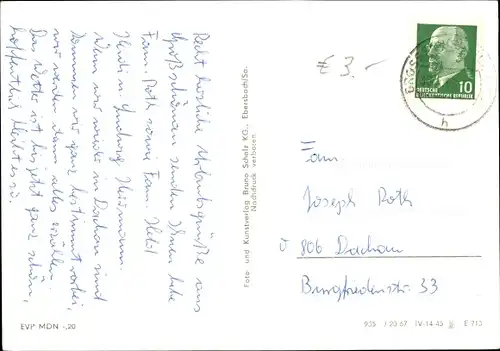 Recht herzliche Urlaubsgrüße aus
Großschönau senden Ihnen liebe
Fam. Roth sowie Fam. Hebl
Heidi u. Ludwig Heumann.
Wenn wir wieder in Dachau sind
kommen wir ganz bestimmt vorbei,
wir werden dann alles erzählen.
Das Wetter ist bis jetzt ganz schön,
hoffentlich bleibt es so.
EVP MDN -,20
Foto- und Kunstverlag Bruno Scholz KG., Ebersbach/Sa.
Nachdruck verboten
€ 3.-
10
DEUTSCHE
DEMOKRATISCHE REPUBLIK
h
Fam.
Joseph Roth
806 Dachau
Burgfriedenstr. 33
935 J 20 67 IV-14-45 E 713